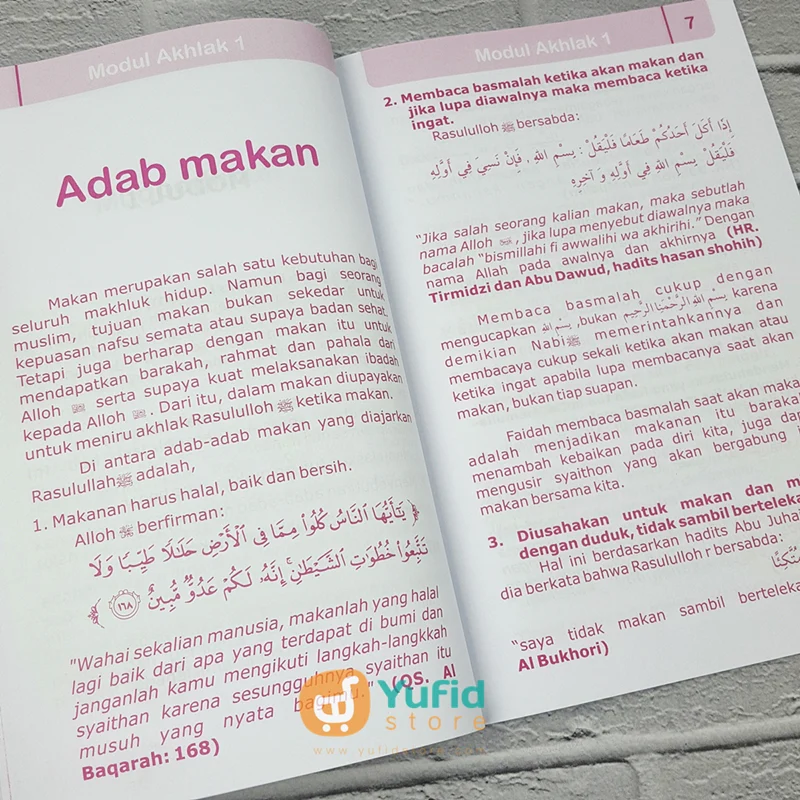 Modul Akhlak 1
Adab makan
Makan merupakan salah satu kebutuhan bagi
seluruh makhluk hidup. Namun bagi seorang
muslim, tujuan makan bukan sekedar untuk
kepuasan nafsu semata atau supaya badan sehat.
Tetapi juga berharap dengan makan itu untuk
mendapatkan barakah, rahmat dan pahala dari
Alloh ﷻ serta supaya kuat melaksanakan ibadah
kepada Alloh ﷻ. Dari itu, dalam makan diupayakan
untuk meniru akhlak Rasululloh ﷺ ketika makan.
Di antara adab-adab makan yang diajarkan
Rasulullah ﷺ adalah,
1. Makanan harus halal, baik dan bersih.
Alloh ﷻ berfirman:
﴿ يَٰٓأَيُّهَا ٱلنَّاسُ كُلُوا۟ مِمَّا فِى ٱلْأَرْضِ حَلَٰلًا طَيِّبًا وَلَا
تَتَّبِعُوا۟ خُطُوَٰتِ ٱلشَّيْطَٰنِ ۚ إِنَّهُۥ لَكُمْ عَدُوٌّ مُّبِينٌ ١٦٨ ﴾
"Wahai sekalian manusia, makanlah yang halal
lagi baik dari apa yang terdapat di bumi dan
janganlah kamu mengikuti langkah-langkkah
syaithan karena sesungguhnya syaithan itu
musuh yang nyata bagimu." (QS. Al
Baqarah: 168)
Modul Akhlak 1
7
2. Membaca basmalah ketika akan makan dan
jika lupa diawalnya maka membaca ketika
ingat.
Rasululloh ﷺ bersabda:
إِذَا أَكَلَ أَحَدُكُمْ طَعَامًا فَلْيَقُلْ : بِسْمِ اللهِ ، فَإِنْ نَسِيَ فِي أَوَّلِهِ
فَلْيَقُلْ بِسْمِ اللهِ فِي أَوَّلِهِ وَ آخِرِهِ
"Jika salah seorang kalian makan, maka sebutlah
nama Alloh ﷻ, jika lupa menyebut diawalnya maka
bacalah "bismillahi fi awwalihi wa akhirihi." Dengan
nama Allah pada awalnya dan akhirnya (HR.
Tirmidzi dan Abu Dawud, hadits hasan shohih)
Membaca basmalah cukup dengan
mengucapkan بِسْمِ اللهِ, bukan بِسْمِ اللهِ الرَّحْمَنِ الرَّحِيمِ karena
demikian Nabi ﷺ memerintahkannya dan
membacaya cukup sekali ketika akan makan atau
ketika ingat apabila lupa membacanya saat akan
makan, bukan tiap suapan.
Faidah membaca basmalah saat akan maka
adalah menjadikan makanan itu baraka
menambah kebaikan pada diri kita, juga da
mengusir syaithon yang akan bergabung
makan bersama kita.
3. Diusahakan untuk makan dan m
dengan duduk, tidak sambil berteleka
Hal ini berdasarkan hadits Abu Juha
dia berkata bahwa Rasululloh r bersabda:
مُتَّكِئًا
"saya tidak makan sambil berteleka
Al Bukhori)
Yufid
store
www.yufidstore.com